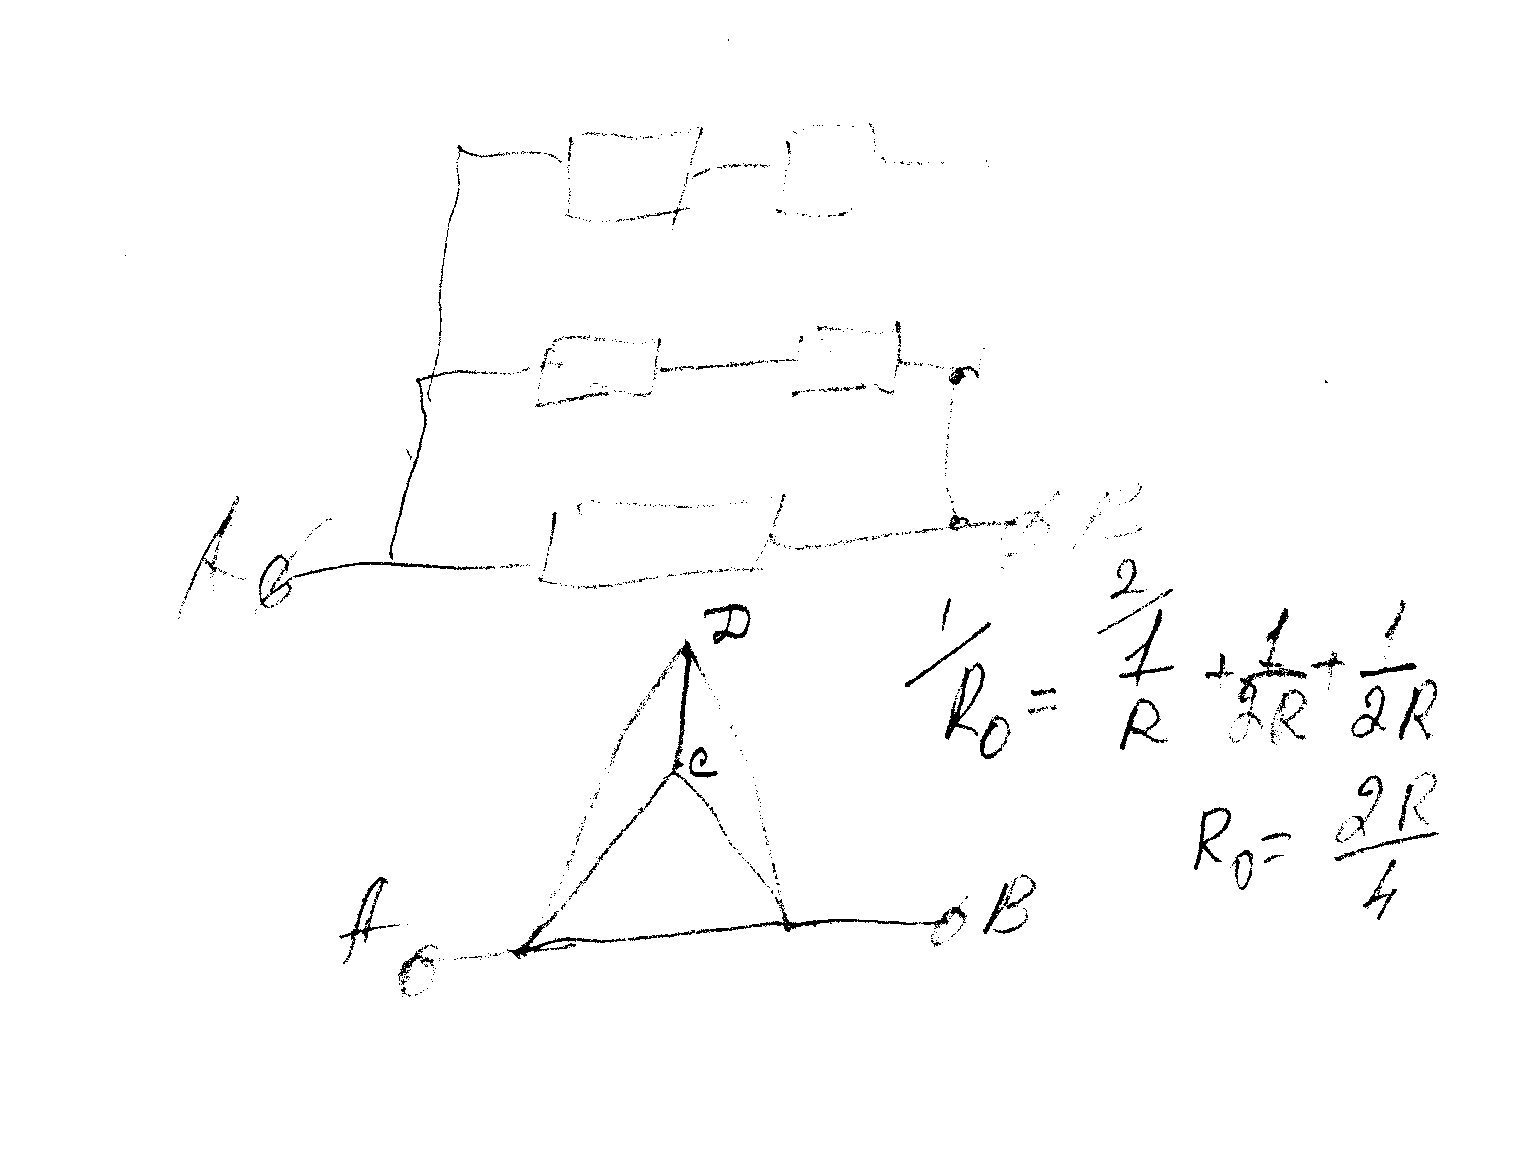 A B
D
C
A B
1/R₀ = 2/1/R + 1/2R + 1/2R
R₀ = 2R/4